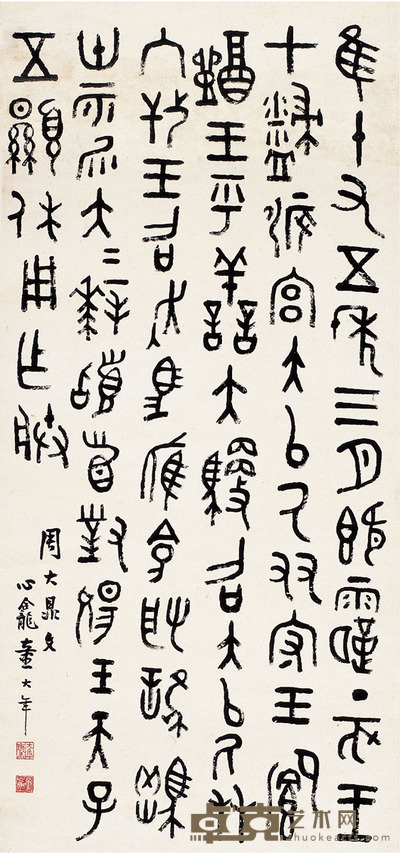 隹十又五年三月既霸丁亥王
才侲宫大以厥友守王饗
醴王乎善大駛召大以厥友
入攼王召走馬雁令取
易大=拜稽首對揚王天子
不顯休用乍朕
周大鼎文
心龕童大年
卓克艺术网
zhuokearts.com